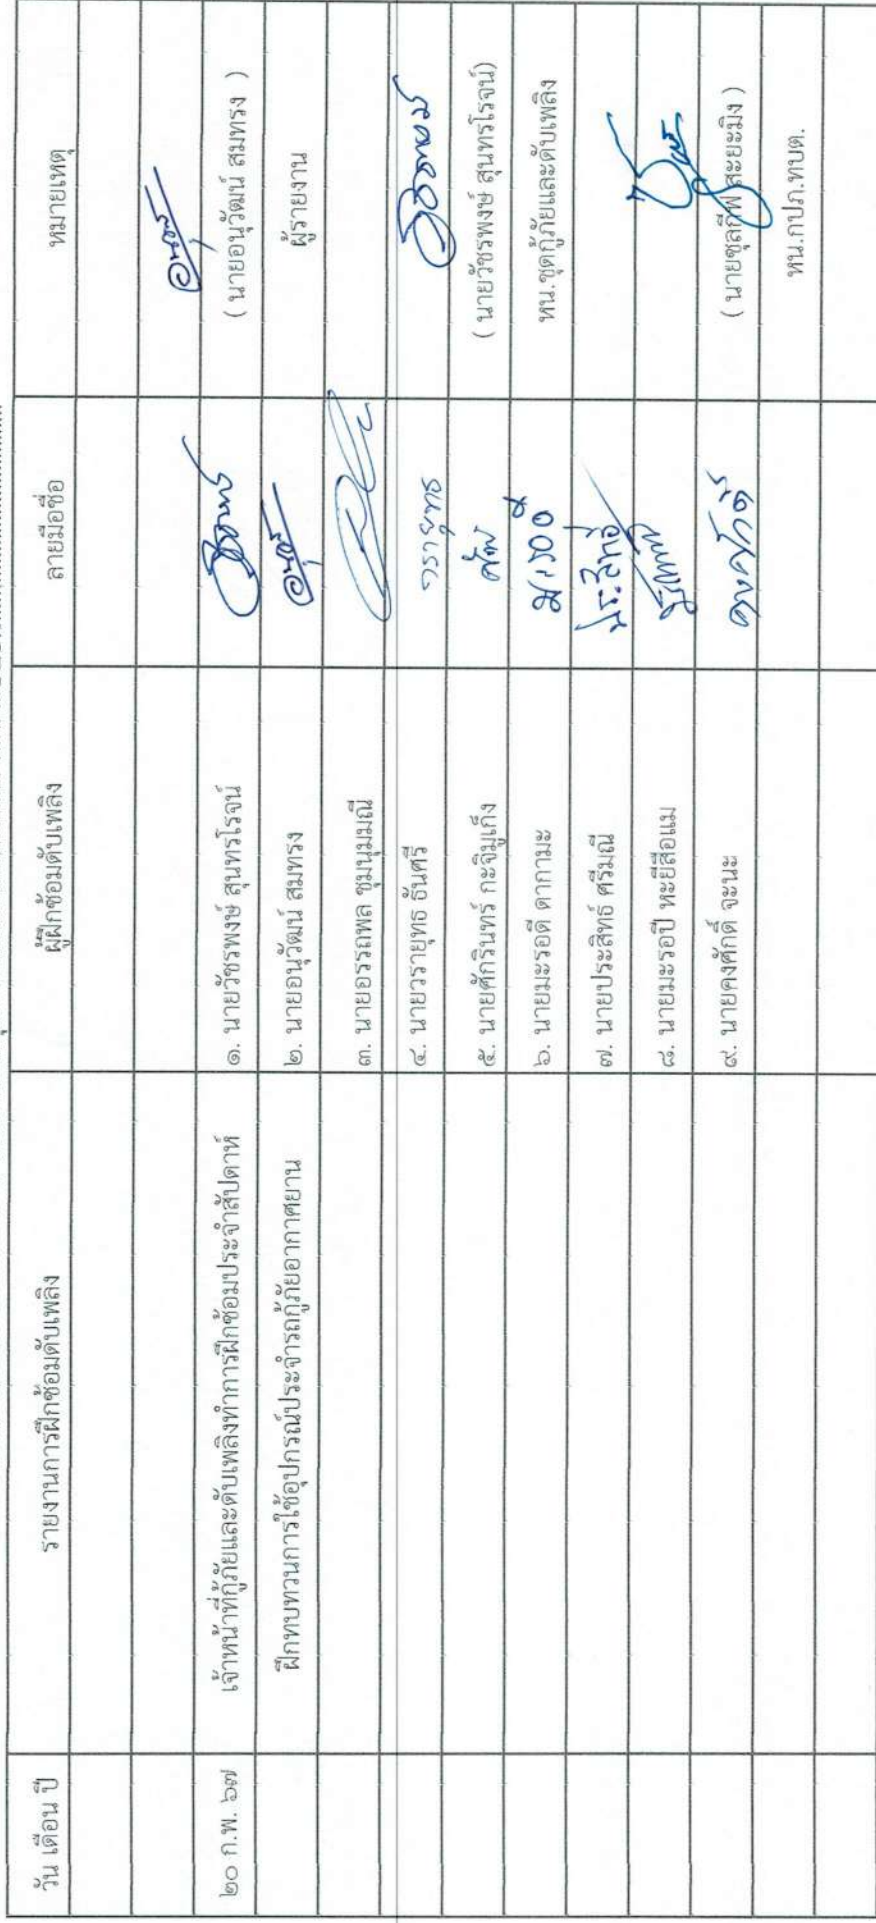 วัน เดือน ปี รายงานการฝึกซ้อมดับเพลิง ผู้ฝึกซ้อมดับเพลิง ลายมือชื่อ หมายเหตุ
๒๐ ก.พ. ๖๗ เจ้าหน้าที่กู้ภัยและดับเพลิงทำการฝึกซ้อมประจำสัปดาห์ ๑. นายวัชรพงษ์ สุนทรโรจน์ ( นายอนุวัฒน์ สมทรง )
ฝึกทบทวนการใช้อุปกรณ์ประจำรถกู้ภัยอากาศยาน ๒. นายอนุวัฒน์ สมทรง ผู้รายงาน
๓. นายอรรถพล ชุมนุมมณี
๔. นายวรายุทธ ธันศรี วรายุทธ
๕. นายศักรินทร์ กะจิมูเก็ง ( นายวัชรพงษ์ สุนทรโรจน์)
๖. นายมะรอดี ดากามะ หน.ชุดกู้ภัยและดับเพลิง
๗. นายประสิทธิ์ ศรีมณี ประสิทธิ์
๘. นายมะรอปี หะยีสือแม
๙. นายคงศักดิ์ จะนะ คงศักดิ์ ( นายซุลกีฟ สะยะมิง )
หน.กปภ.ทบต.